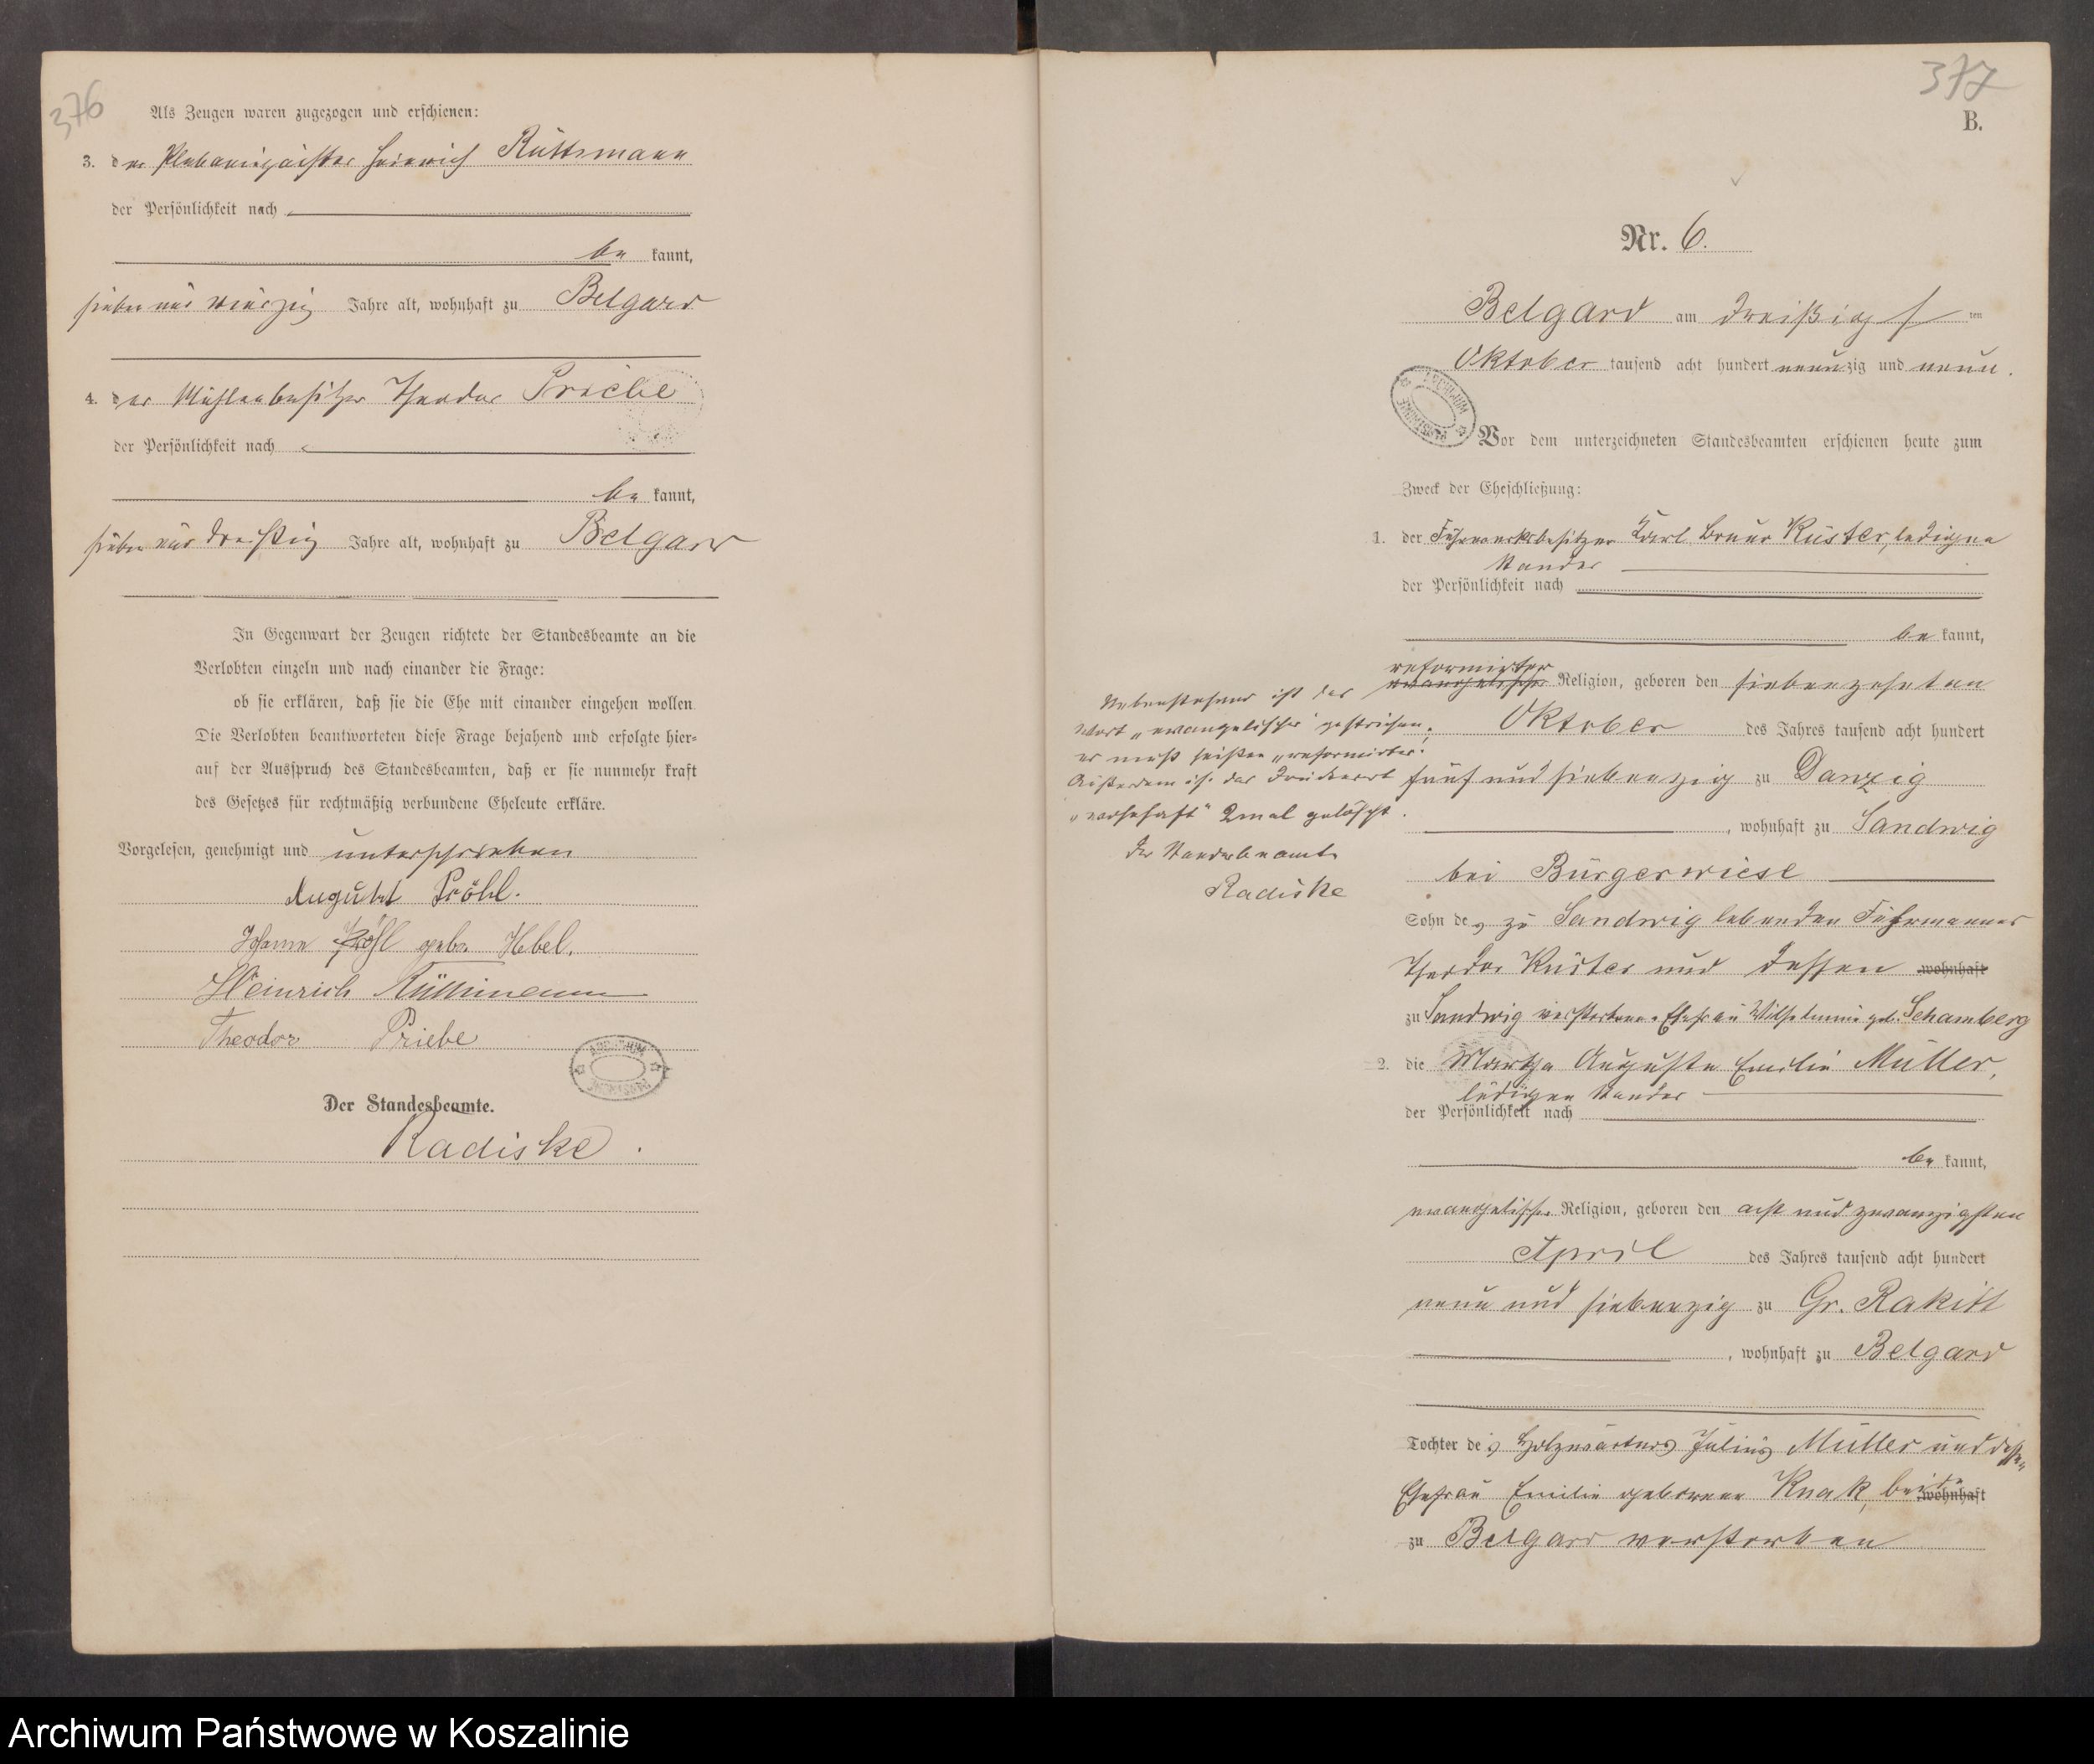 376
Als Zeugen waren zugezogen und erschienen:
3. der Heinrich Rüttimann
der Persönlichkeit nach
be kannt,
sieben und vierzig Jahre alt, wohnhaft zu Belgard
4. der Mühlenbesitzer Theodor Priebe
der Persönlichkeit nach
be kannt,
sieben und dreißig Jahre alt, wohnhaft zu Belgard
In Gegenwart der Zeugen richtete der Standesbeamte an die
Verlobten einzeln und nach einander die Frage:
ob sie erklären, daß sie die Ehe mit einander eingehen wollen.
Die Verlobten beantworteten diese Frage bejahend und erfolgte hier-
auf der Ausspruch des Standesbeamten, daß er sie nunmehr kraft
des Gesetzes für rechtmäßig verbundene Eheleute erkläre.
Vorgelesen, genehmigt und unterschrieben
August Pröhl.
Pröhl geb. Hebel.
Heinrich Rüttimann
Theodor Priebe
Der Standesbeamte.
Radiske.
377
B.
Nr. 6.
Belgard am dreißigsten
Oktober tausend acht hundert neunzig und neun.
Vor dem unterzeichneten Standesbeamten erschienen heute zum
Zweck der Eheschließung:
1. der Fuhrwerksbesitzer Karl Bruno Küster, ledigen
Standes
der Persönlichkeit nach
be kannt,
reformirter
evangelischer Religion, geboren den siebenzehnten
Oktober des Jahres tausend acht hundert
fünf und siebenzig zu Danzig
, wohnhaft zu Sandwig
bei Bürgerwiese
Sohn des zu Sandwig lebenden Fuhrmannes
Theodor Küster und dessen wohnhaft
zu Sandwig verstorbenen Ehefrau Wilhelmine geb. Schamberg
Nebenstehend ist das
Wort „evangelischer" gestrichen;
es muß heißen „reformirter".
Außerdem ist das Druckwort
„wohnhaft" 2mal gelöscht.
Der Standesbeamte
Radiske
2. die Martha Auguste Emilie Müller,
ledigen Standes
der Persönlichkeit nach
be kannt,
evangelischer Religion, geboren den acht und zwanzigsten
April des Jahres tausend acht hundert
neun und siebenzig zu Gr. Rakitt
, wohnhaft zu Belgard
Tochter des Holzwärters Julius Müller und dessen
Ehefrau Emilie geborene Knak, beide wohnhaft
zu Belgard verstorben
Archiwum Państwowe w Koszalinie